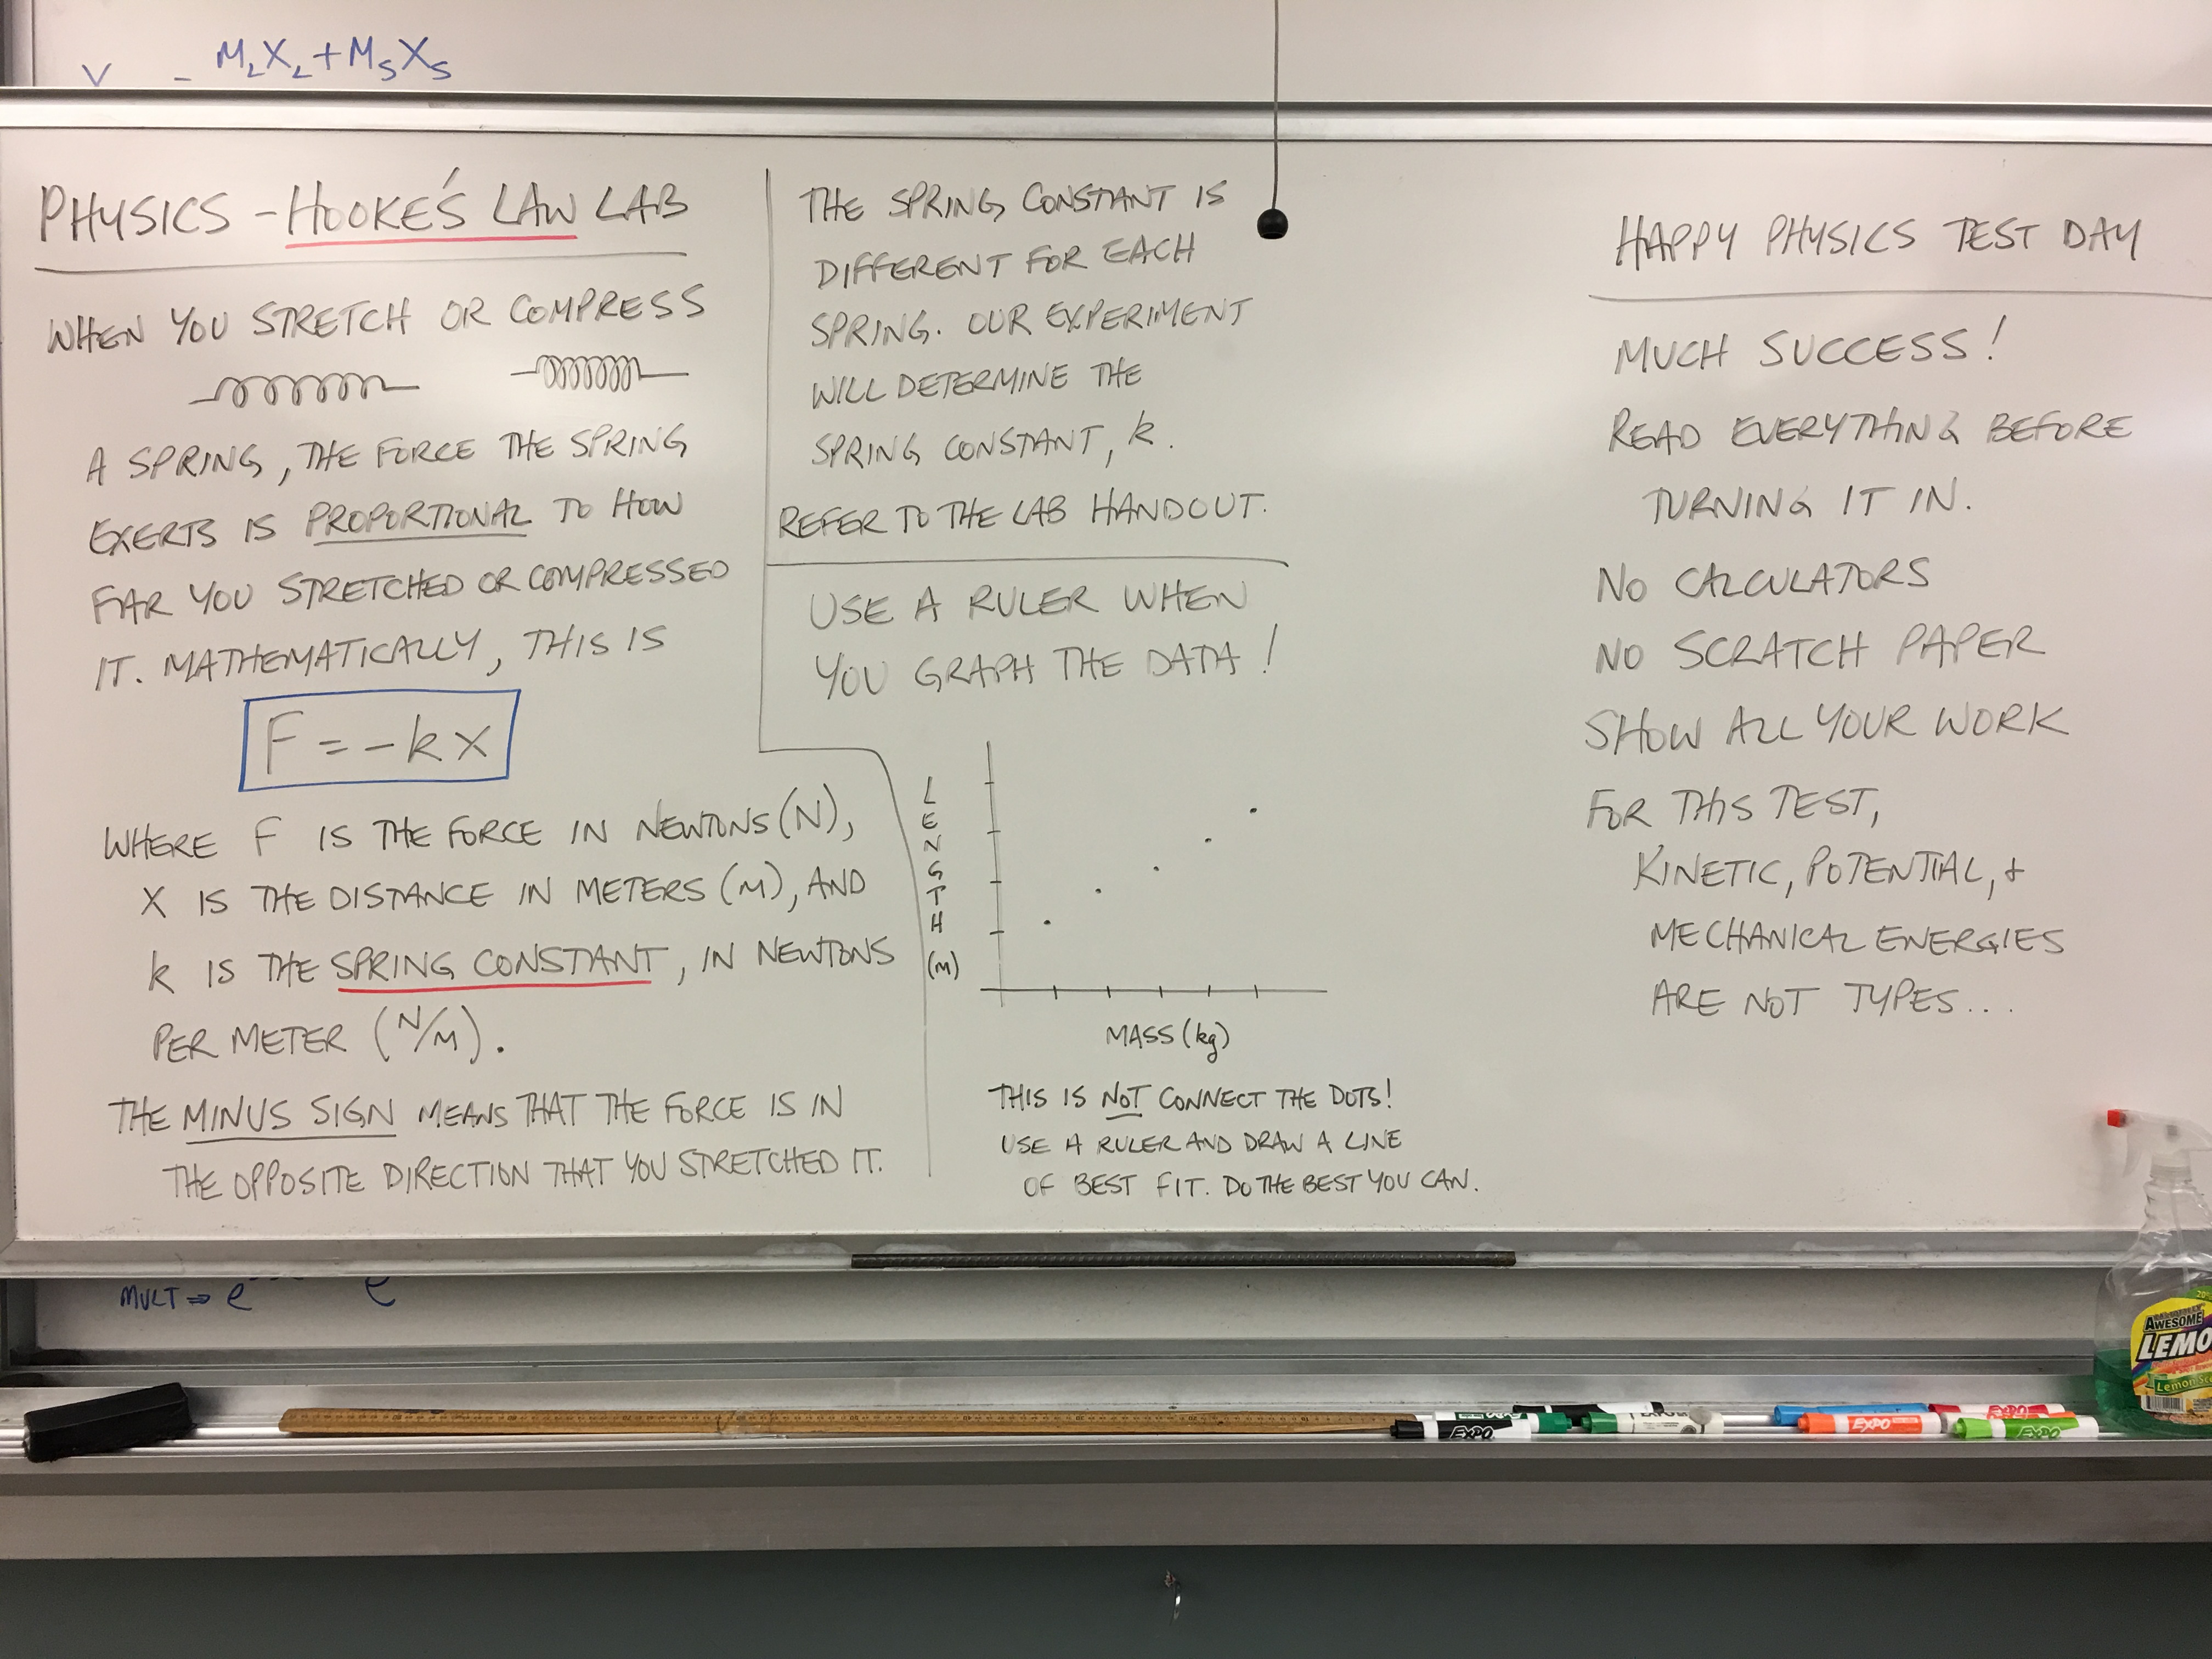 M_L X_L + M_S X_S
PHYSICS - HOOKE'S LAW LAB
WHEN YOU STRETCH OR COMPRESS
A SPRING, THE FORCE THE SPRING
EXERTS IS PROPORTIONAL TO HOW
FAR YOU STRETCHED OR COMPRESSED
IT. MATHEMATICALLY, THIS IS
F = -k x
WHERE F IS THE FORCE IN NEWTONS (N),
X IS THE DISTANCE IN METERS (M), AND
k IS THE SPRING CONSTANT, IN NEWTONS
PER METER (N/M).
THE MINUS SIGN MEANS THAT THE FORCE IS IN
THE OPPOSITE DIRECTION THAT YOU STRETCHED IT.
THE SPRING CONSTANT IS
DIFFERENT FOR EACH
SPRING. OUR EXPERIMENT
WILL DETERMINE THE
SPRING CONSTANT, k.
REFER TO THE LAB HANDOUT.
USE A RULER WHEN
YOU GRAPH THE DATA!
LENGTH (M)
MASS (kg)
THIS IS NOT CONNECT THE DOTS!
USE A RULER AND DRAW A LINE
OF BEST FIT. DO THE BEST YOU CAN.
HAPPY PHYSICS TEST DAY
MUCH SUCCESS!
READ EVERYTHING BEFORE
TURNING IT IN.
NO CALCULATORS
NO SCRATCH PAPER
SHOW ALL YOUR WORK
FOR THIS TEST,
KINETIC, POTENTIAL, +
MECHANICAL ENERGIES
ARE NOT TYPES...
MULT ⇒ e e
AWESOME
LEMO
Lemon Sc
EXPO
EXPO
EXPO